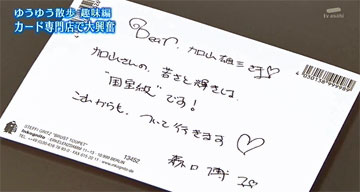 ゆうゆう散歩 趣味編
カード専門店で大興奮
tv asahi
Dear, 加山雄三さま♡
加山さんの、若さと輝きは
"国宝級"です!
これからも、ついて行きます♡
森口博子
STEFFI GRITZ "BRUST TOUPET"
Inkognito
13452